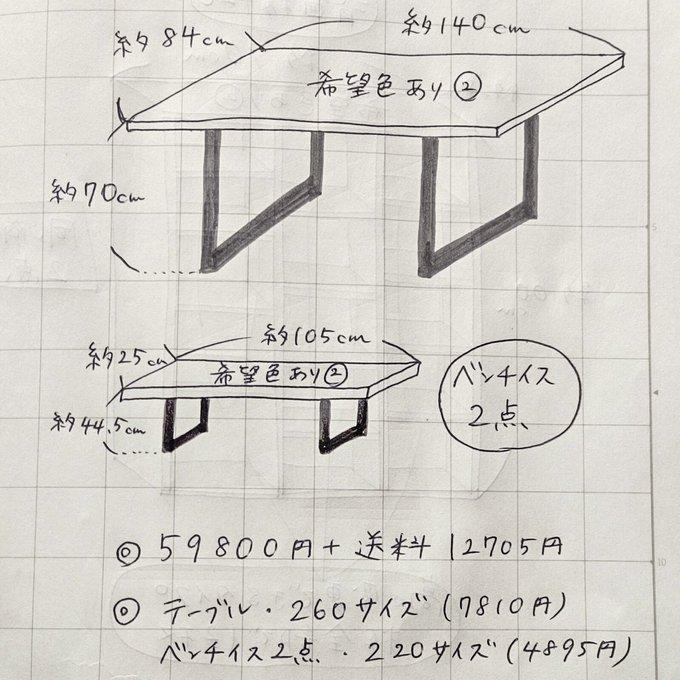 約84cm
約140cm
希望色あり②
約70cm
約105cm
約25cm
希望色あり②
約44.5cm
ベンチイス
2点
◎ 59800円+送料12705円
◎ テーブル・260サイズ(7810円)
ベンチイス2点・220サイズ(4895円)